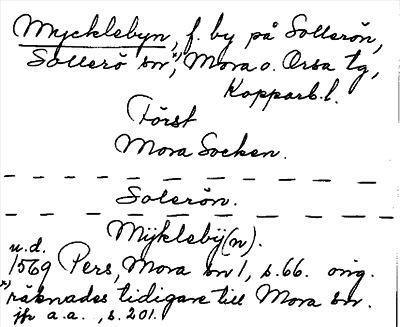 Mycklebyn, f. by på Sollerön,
Sollerö sn*), Mora o. Orsa tg,
Kopparb. l.
Först
Mora Socken.
Solerön.
Mÿklebÿ(n).
u.d.
1569 Pers, Mora sn 1, s. 66. orig.
*) räknades tidigare till Mora sn.
jfr a.a., s. 201.